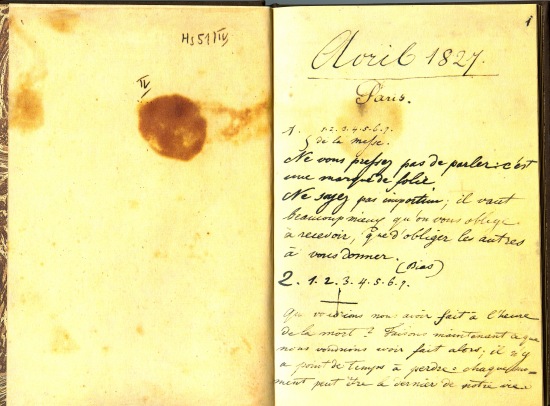 Hs 51 IV
IV
1
Avril 1827.
Paris.
1. 1.2.3.4.5.6.7.
de la messe.
Ne vous pressez pas de parler: c'est
une marque de folie.
Ne soyez pas importun; il vaut
beaucoup mieux qu'on vous oblige
à recevoir, que d'obliger les autres
à vous donner.
(Bias)
2. 1.2.3.4.5.6.7.
Que voudrions nous avoir fait à l'heure
de la mort? Faisons maintenant ce que
nous voudrions avoir fait alors; il n'y
a point de temps à perdre: chaque mo-
ment peut être le dernier de notre vie.